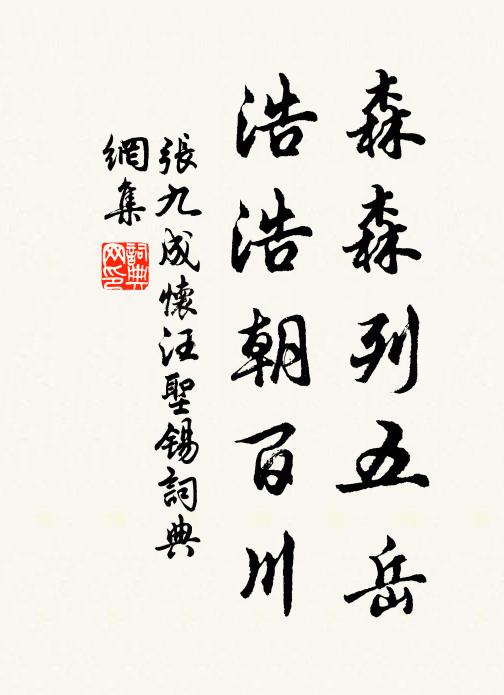 森森列五岳
浩浩朝百川
張九成懷汪聖錫詞典
網集
詞典
网印